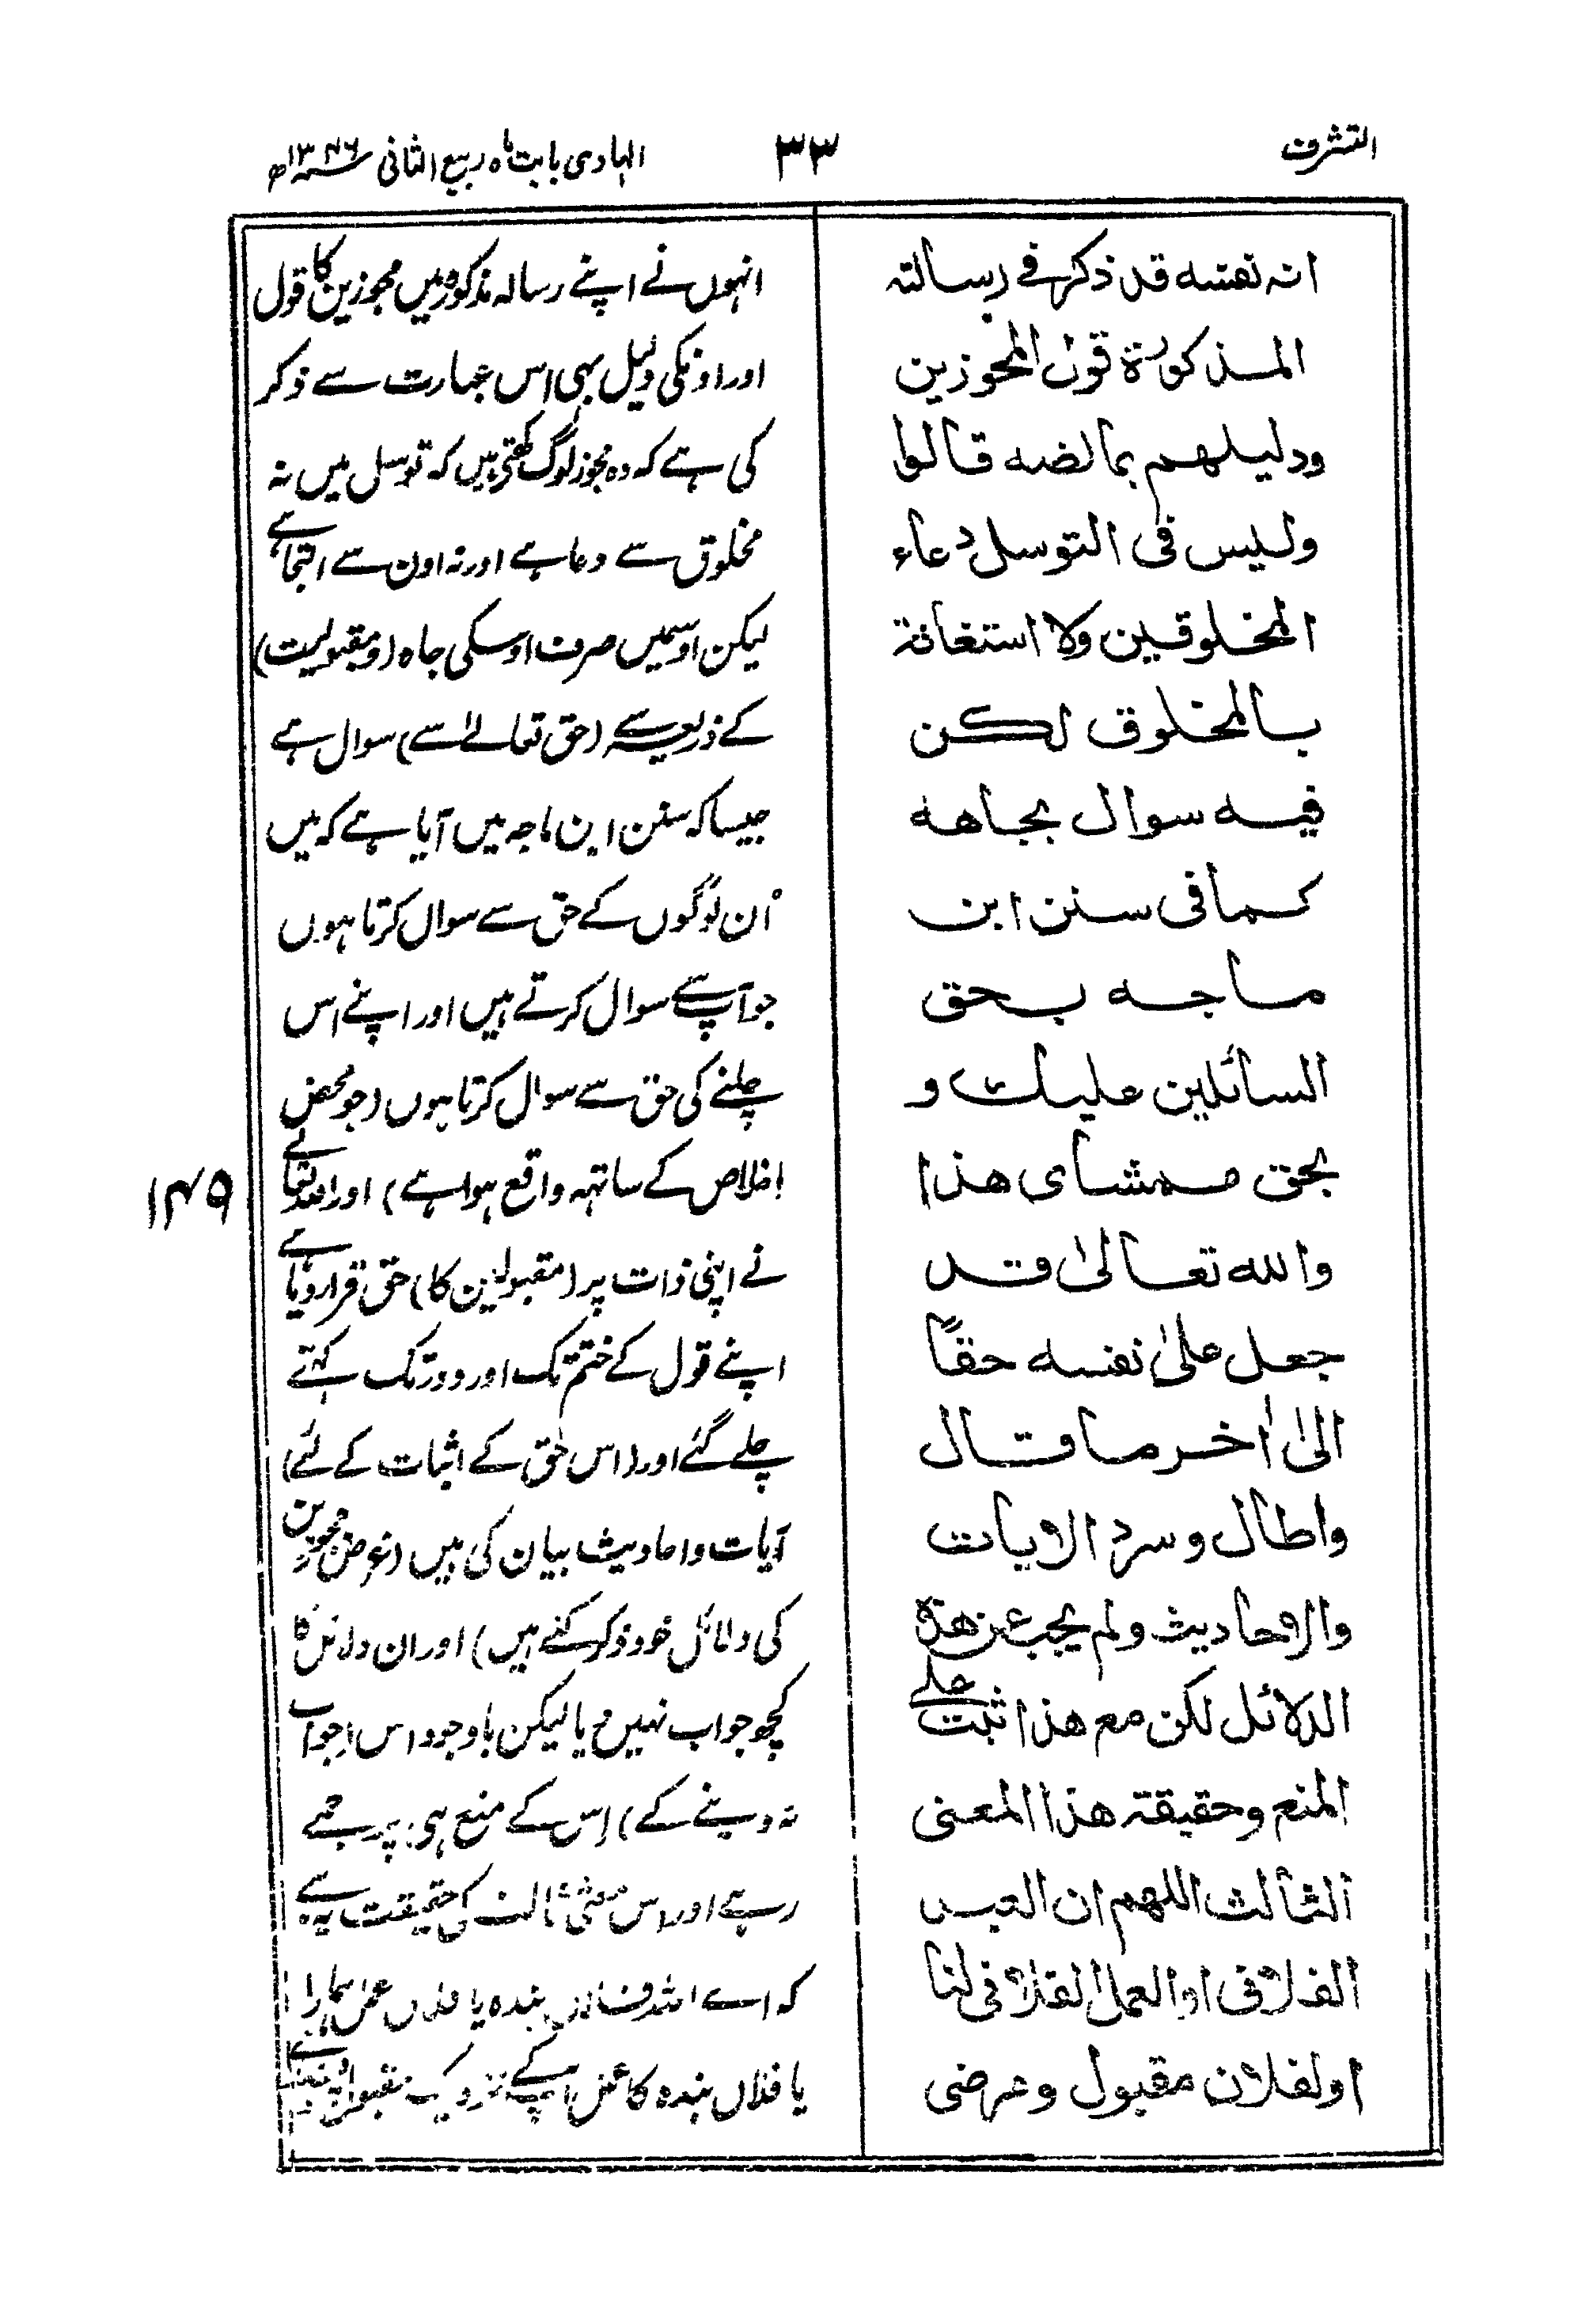 التشرف
۳۳
الہادی بابت ماہ ربیع الثانی ۱۳۴۶ھ
انہ نفسہ قد ذکر فی رسالتہ
المذکورۃ قول المجوزین
ودلیلھم بما نصہ قالوا
ولیس فی التوسل دعاء
المخلوقین ولا استغاثة
بالمخلوق لکن
فیہ سوال بجاھہ
کما فی سنن ابن
ماجہ بحق
السائلین علیک و
بحق ممشای ھذا
واللہ تعالیٰ قد
جعل علیٰ نفسہ حقًا
الیٰ اٰخر ما قال
واطال وسرد الایات
والاحادیث ولم یجب عن ھذہ
الدلائل لکن مع ھذا ثبت علے
المنع وحقیقتہ ھذا المعنی
الثالث اللھم ان العبد
الفلانی او العمل الفلانی لنا
او لفلان مقبول و عرضی
انہوں نے اپنے رسالہ مذکورہ میں مجوزین کا قول
اور اونکی دلیل بھی اس عبارت سے ذکر
کی ہے کہ وہ مجوز لوگ کہتے ہیں کہ توسل میں نہ
مخلوق سے دعا ہے اور نہ اون سے التجا ہے
لیکن اوسمیں صرف اوسکی جاہ (و مقبولیت)
کے ذریعہ سے (حق تعالےٰ سے) سوال ہے
جیسا کہ سنن ابن ماجہ میں آیا ہے کہ میں
اُن لوگوں کے حق سے سوال کرتا ہوں
جو آپ سے سوال کرتے ہیں اور اپنے اس
چلنے کی حق سے سوال کرتا ہوں (جو محض
اخلاص کے ساتھہ واقع ہوا ہے) اور اللہ تعالے
نے اپنی ذات پر (مقبولین کا) حق قرار دیا ہے
اپنے قول کے ختم تک اور دور تک کہتے
چلے گئے اور (اس حق کے اثبات کے لئے)
آیات و احادیث بیان کی ہیں (غرض مجوزین
کی دلائل خود ذکر کئے ہیں) اور ان دلائل کا
کچھ جواب نہیں دیا لیکن باوجود اس (جواب
نہ دینے کے) اس کے منع ہی پر جمے
رہے اور اس معنی ثالث کی حقیقت یہ ہے
کہ اے اللہ فلاں بندہ یا فلاں عمل ہمارا
یا فلاں بندہ کا عمل آپ کے نزدیک مقبول
۱۴۹